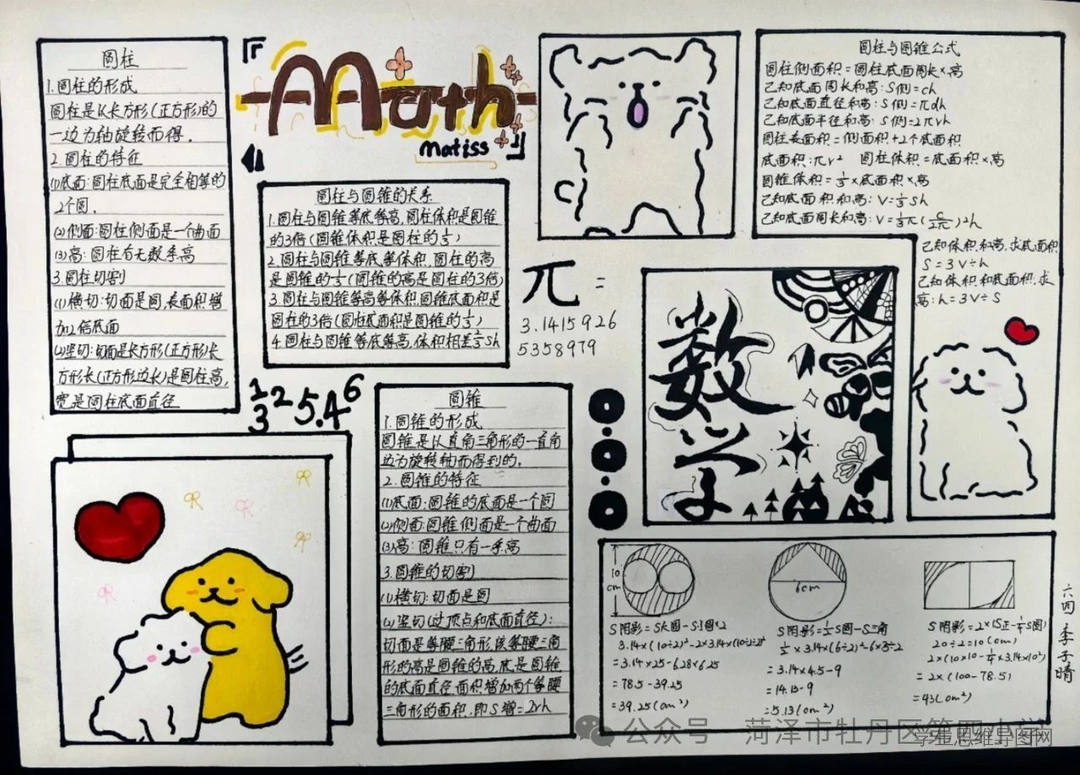 圆柱
1.圆柱的形成
圆柱是以长方形(正方形)的
一边为轴旋转而得.
2.圆柱的特征
(1)底面:圆柱底面是完全相等的
2个圆.
(2)侧面:圆柱侧面是一个曲面
(3)高:圆柱有无数条高
3.圆柱切割
(1)横切:切面是圆,表面积增
加2倍底面
(2)竖切:切面是长方形(正方形)长
方形长(正方形边长)是圆柱高,
宽是圆柱底面直径
Math
matiss
圆柱与圆锥的关系
1.圆柱与圆锥等底等高,圆柱体积是圆锥
的3倍(圆锥体积是圆柱的1/3)
2.圆柱与圆锥等底等体积,圆柱的高
是圆锥的1/3(圆锥的高是圆柱的3倍)
3.圆柱与圆锥等高等体积,圆锥底面积是
圆柱的3倍(圆柱底面积是圆锥的1/3)
4.圆柱与圆锥等底等高,体积相差2/3Sh
圆柱与圆锥公式
圆柱侧面积=圆柱底面周长×高
已知底面周长和高:S侧=ch
已知底面直径和高:S侧=πdh
已知底面半径和高:S侧=2πrh
圆柱表面积=侧面积+2个底面积
底面积:πr² 圆柱体积=底面积×高
圆锥体积=1/3×底面积×高
已知底面积和高:V=1/3Sh
已知底面周长和高:V=1/3π(C/2π)2h
已知体积和高,求底面积
S=3V÷h
已知体积和底面积,求
高:h=3V÷S
π=
3.1415926
5358979
数学
1 3 2 5.4 6
圆锥
1.圆锥的形成
圆锥是以直角三角形的一直角
边为旋转轴而得到的.
2.圆锥的特征
(1)底面:圆锥的底面是一个圆
(2)侧面:圆锥侧面是一个曲面
(3)高:圆锥只有一条高
3.圆锥的切割
(1)横切:切面是圆
(2)竖切(过顶点和底面直径):
切面是等腰三角形,该等腰三角
形的高是圆锥的高,底是圆锥
的底面直径,面积增加两个等腰
三角形的面积,即S增=2rh
10
cm
S阴影=S大圆-S小圆×2
3.14×(10÷2)²-2×3.14×(10÷2÷2)²
=3.14×25-6.28×6.25
=78.5-39.25
=39.25(cm²)
6cm
S阴影=1/2S圆-S三角
1/2×3.14×(6÷2)²-6×3÷2
=3.14×4.5-9
=14.13-9
=5.13(cm²)
S阴影=2×(S正-1/4S圆)
20÷2=10(cm)
2×(10×10-1/4×3.14×10²)
=2×(100-78.5)
=43(cm²)
六四 李子晴
公众号 菏泽市牡丹区第四小学
学霸思维导图网